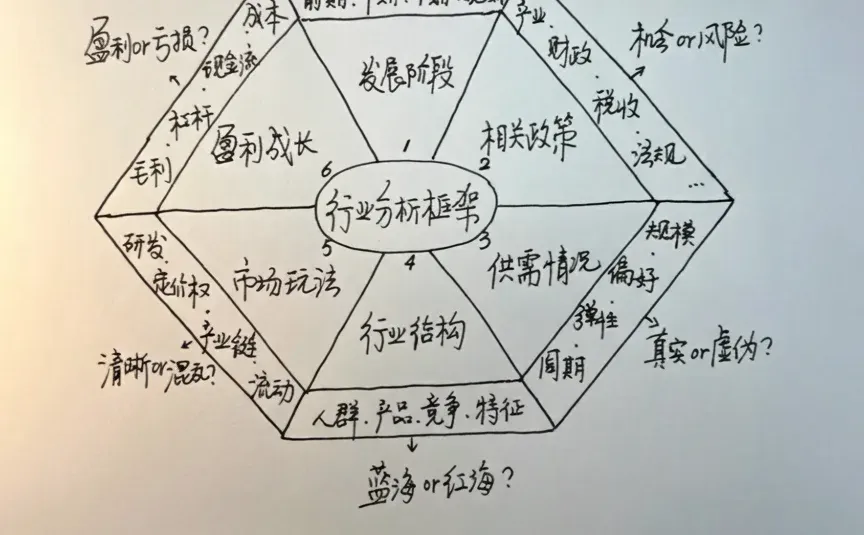 行业分析框架
1
发展阶段
2
相关政策
产业、财政、税收、法规...
机会or风险？
3
供需情况
规模、偏好、弹性、周期
真实or虚伪？
4
行业结构
人群、产品、竞争、特征
蓝海or红海？
5
市场玩法
研发、定价权、产业链、流动
清晰or混乱？
6
盈利成长
成本、现金流、杠杆、毛利
盈利or亏损？